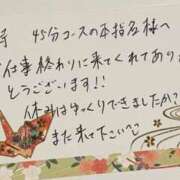 45分コースの本指名様へ
仕事終わりに来てくれてありが
とうございます!!
休みはゆっくりできましたか?
また来て下さい